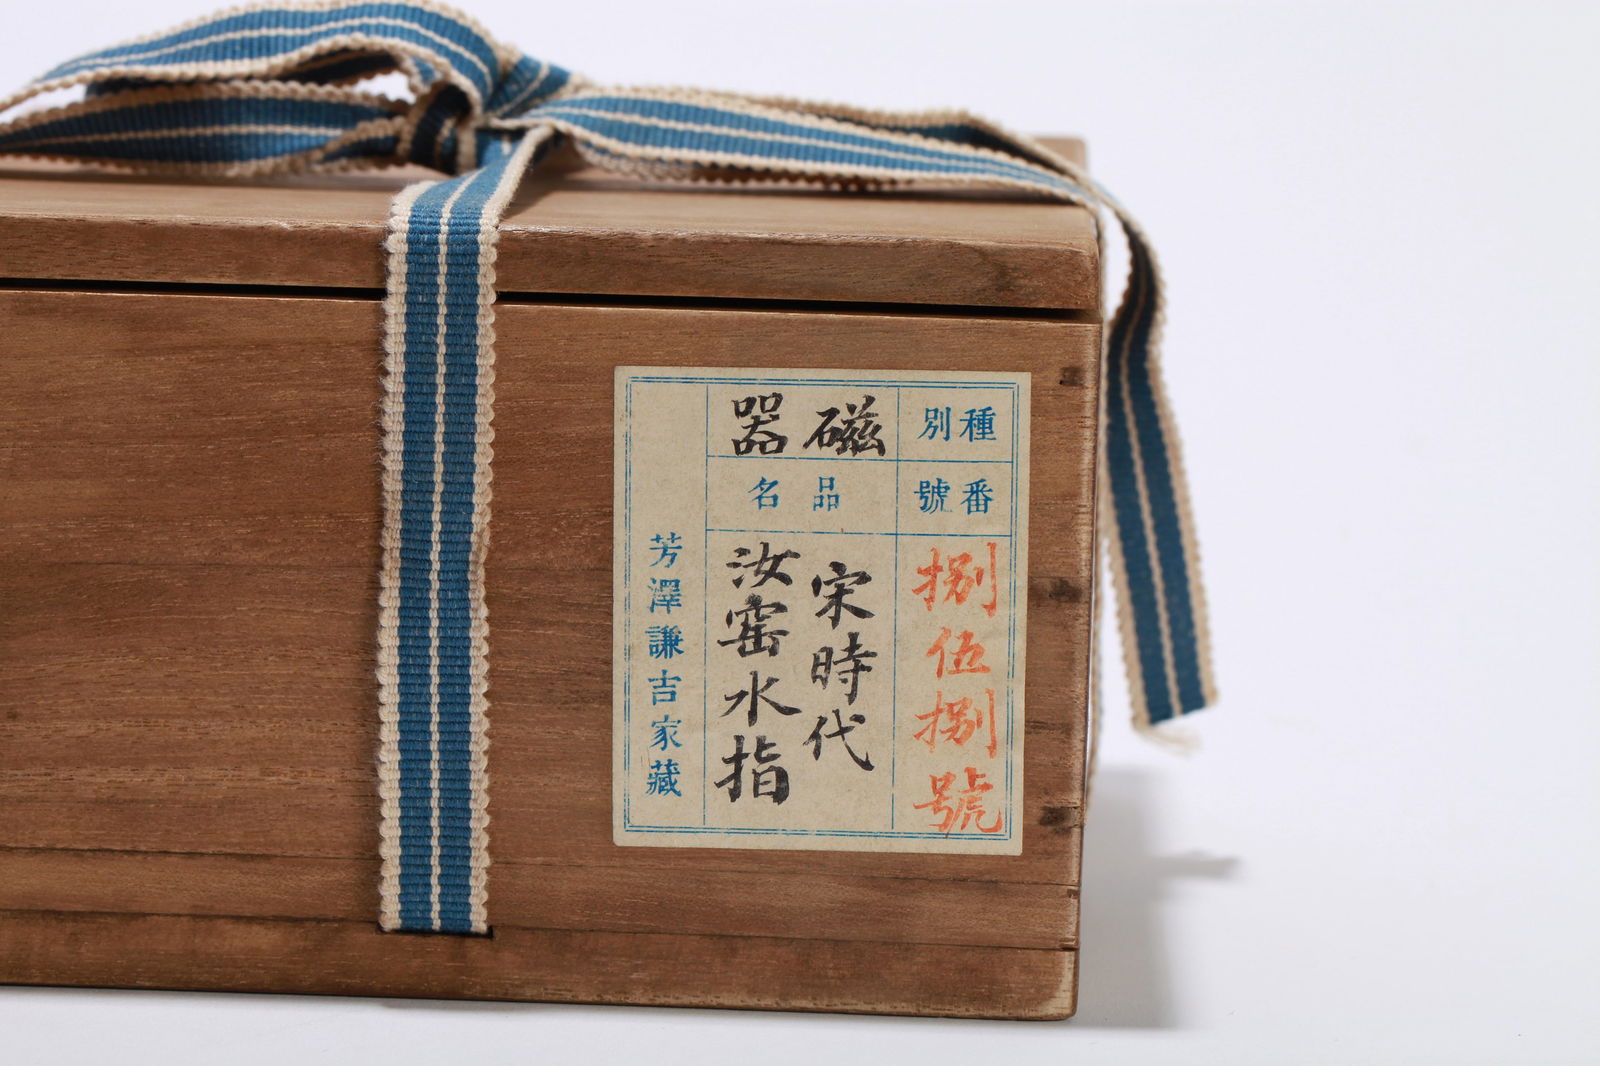 種別
磁器
番號
捌伍捌號
品名
宋時代
汝窑水指
芳澤謙吉家藏